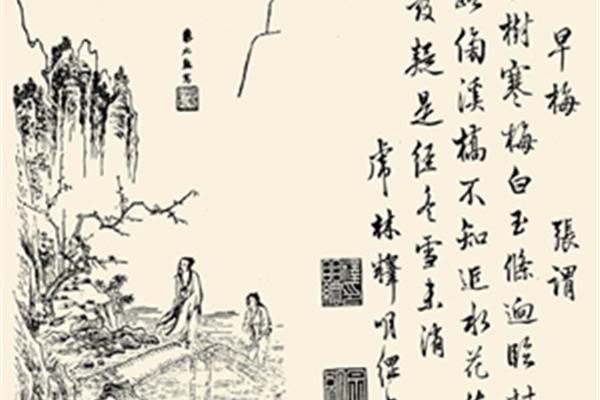 早梅　張謂
樹寒梅白玉條迥臨村
路傍溪橋不知近水花
發疑是經冬雪未消
虎林釋明